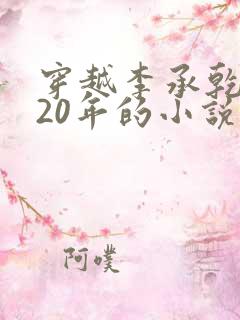 穿越李承乾
20年的小說
阿噗